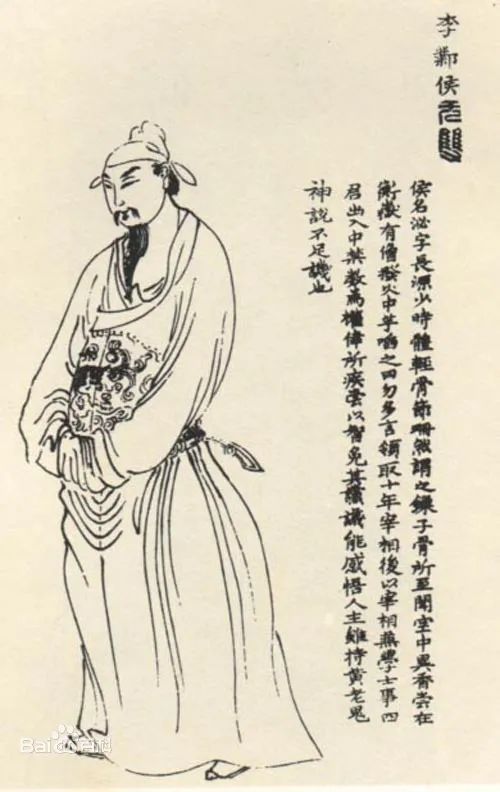 李鄴侯
侯名泌字長源少時體輕骨節珊然謂之鎖子骨所至聞室中異香嘗在
衡嶽有僧撥火中芋啗之曰勿多言領取十年宰相後以宰相兼學士事四
君出入中禁數為權倖所疾以智免其讜議能感悟人主雖持黃老鬼
神說不足譏也
Bai百科